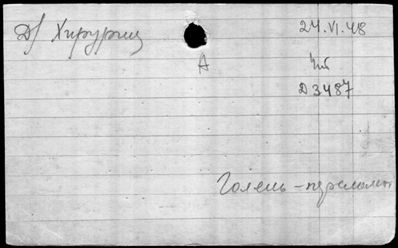 Д/ Хирургиц 24.VI.48
А Чт
Д3487
Голень - переломы